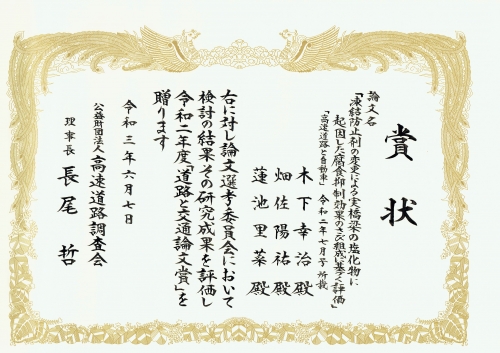 賞状
論文名
「凍結防止剤の変更による実橋梁の塩化物に
起因した腐食抑制効果のさび組成に基づく評価」
「高速道路と自動車」 令和二年七月号 所載
木下幸治殿
畑佐陽祐殿
蓮池里菜殿
右に対し論文選考委員会において
検討の結果その研究成果を評価し
令和二年度「道路と交通論文賞」を
贈ります
令和三年六月七日
公益財団法人高速道路調査会
理事長 長尾哲